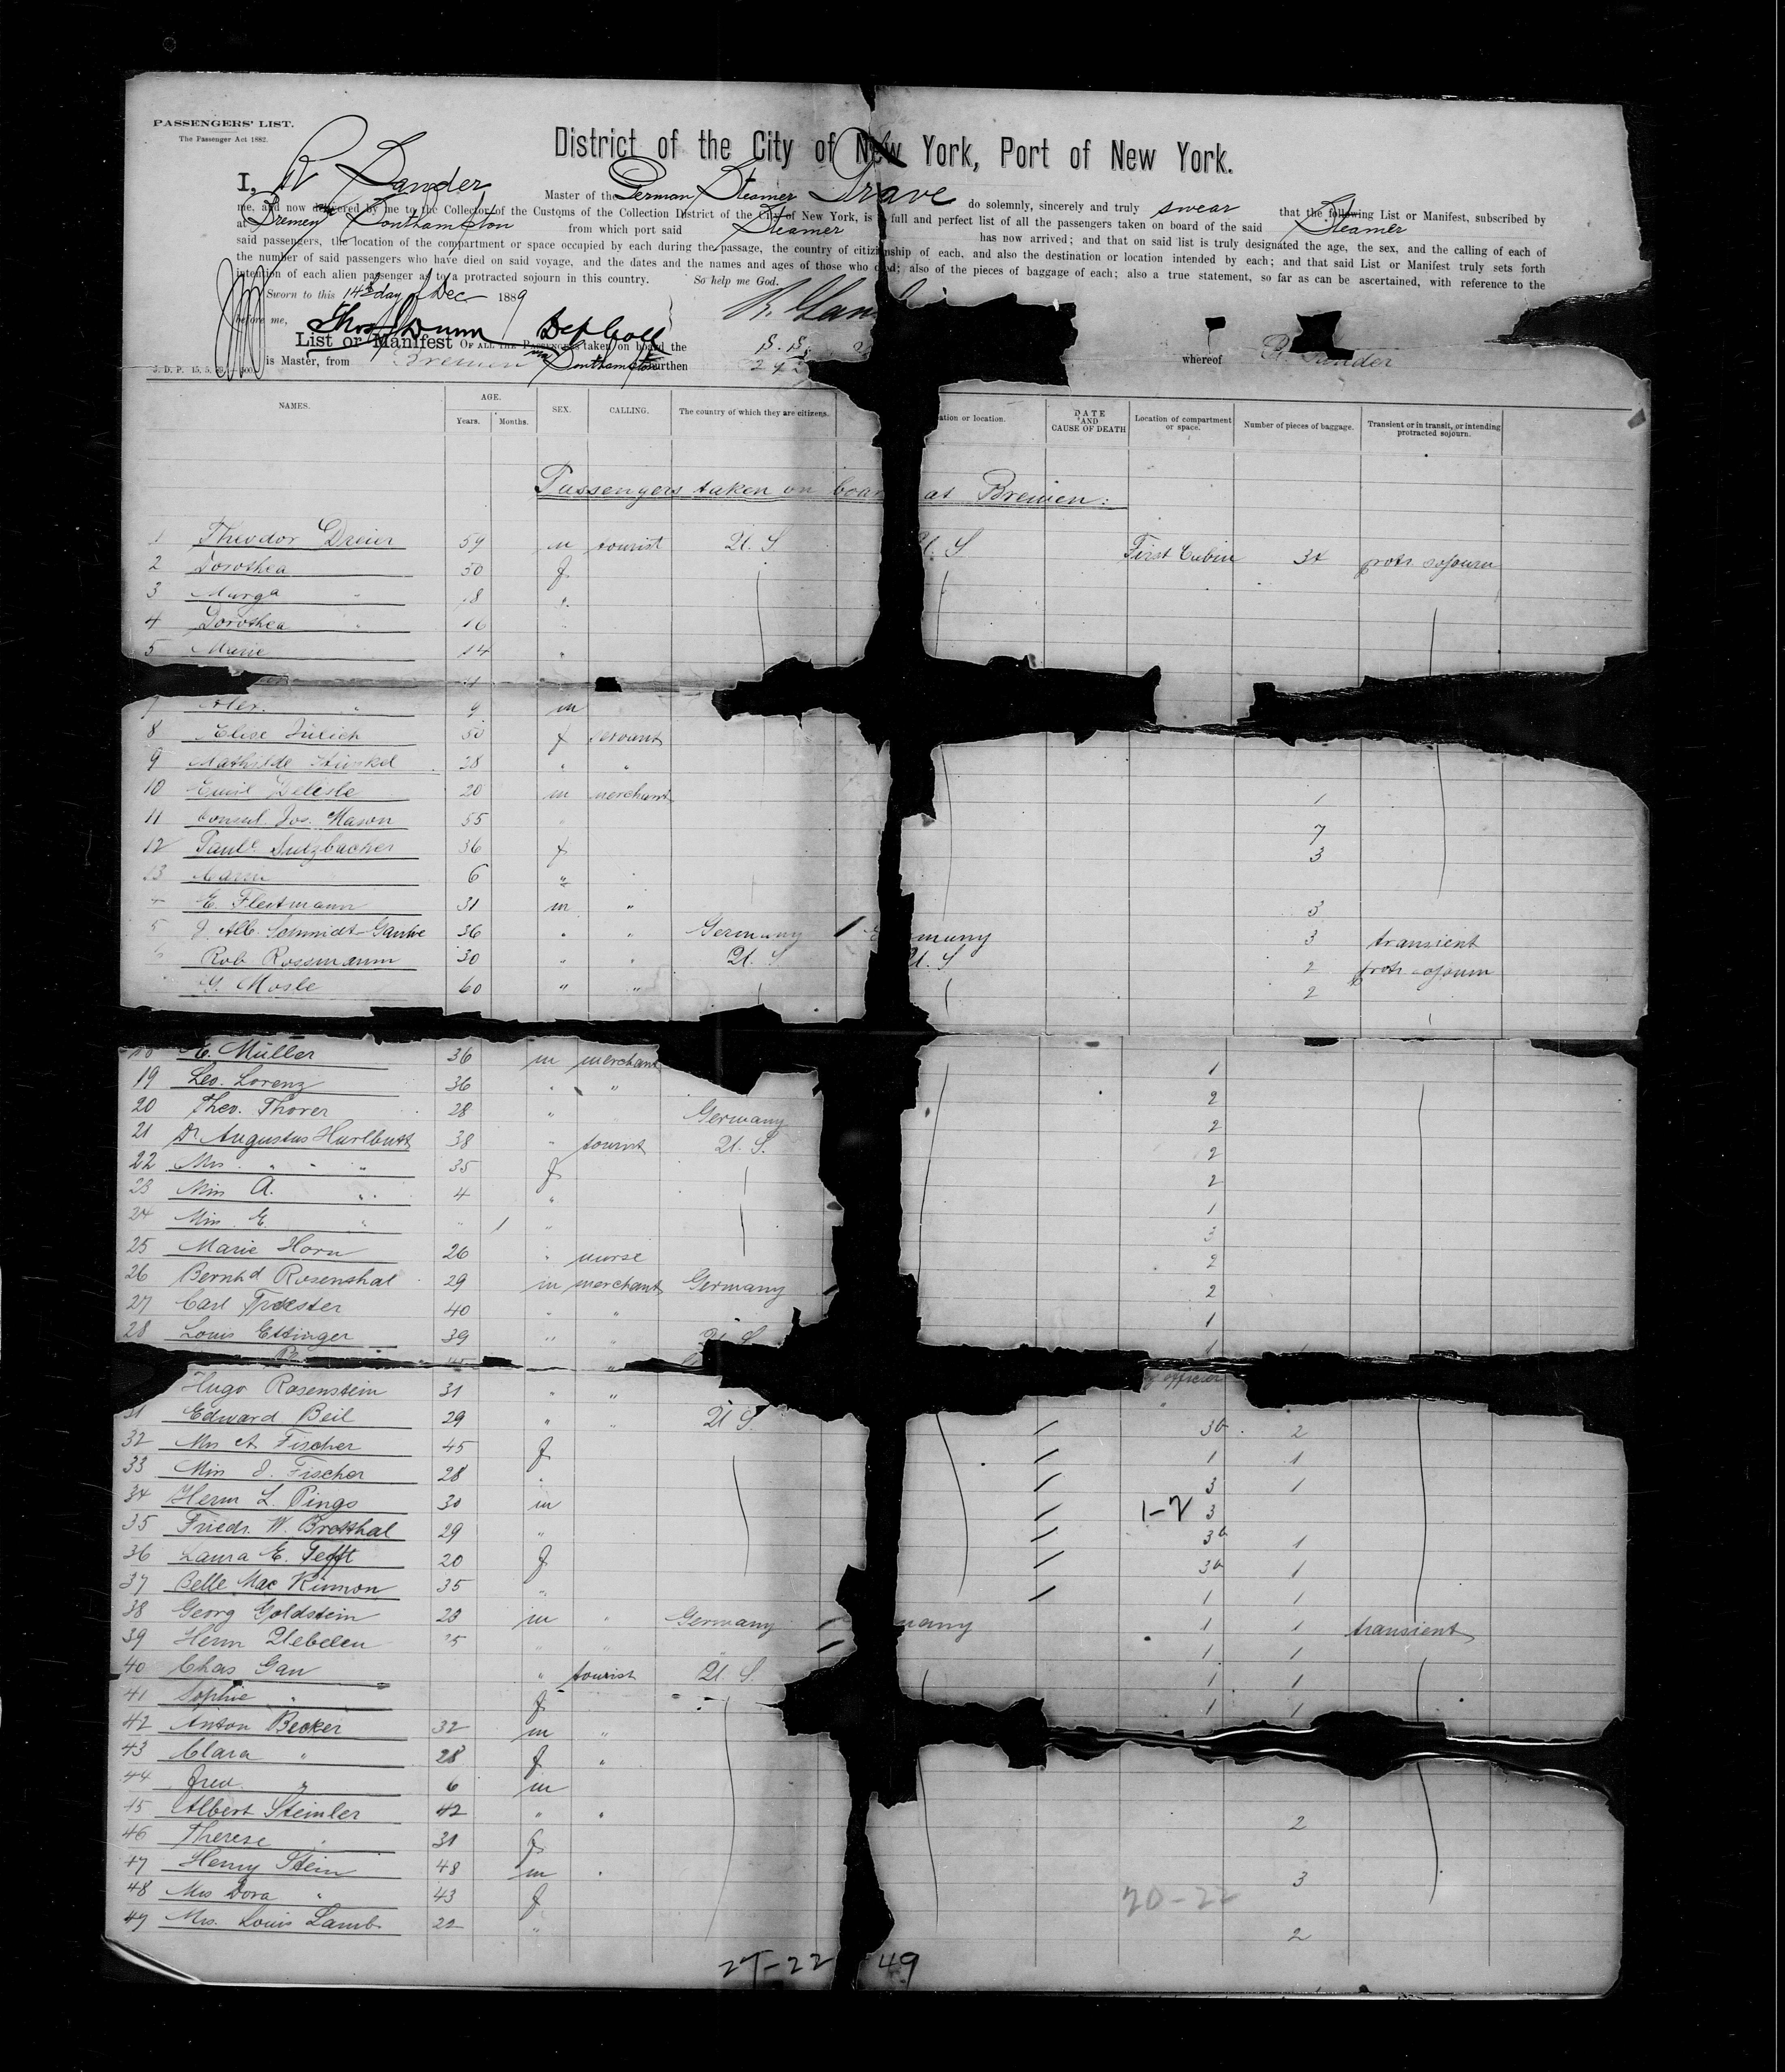 PASSENGERS' LIST.
The Passenger Act 1882.
District of the City of New York, Port of New York.
I, R Sander Master of the German Steamer Trave do solemnly, sincerely and truly swear that the following List or Manifest, subscribed by
me, and now delivered by me to the Collector of the Customs of the Collection District of the City of New York, is a full and perfect list of all the passengers taken on board of the said Steamer
at Bremen & Southampton from which port said Steamer has now arrived; and that on said list is truly designated the age, the sex, and the calling of each of
said passengers, the location of the compartment or space occupied by each during the passage, the country of citizenship of each, and also the destination or location intended by each; and that said List or Manifest truly sets forth
the number of said passengers who have died on said voyage, and the dates and the names and ages of those who died; also of the pieces of baggage of each; also a true statement, so far as can be ascertained, with reference to the
intention of each alien passenger as to a protracted sojourn in this country. So help me God.
Sworn to this 14th day of Dec 1889
before me, Thos Dunn Dep Coll
List or Manifest OF ALL THE PASSENGERS taken on board the S.S.
whereof R. Sander
is Master, from Bremen via Southampton burthen
NAMES. AGE. SEX. CALLING. The country of which they are citizens. ation or location. DATE AND CAUSE OF DEATH Location of compartment or space. Number of pieces of baggage. Transient or in transit, or intending protracted sojourn.
Years. Months.
Passengers taken on boar at Bremen:
1 Theodor Dreier 59 m tourist U. S. U. S First Cabin 34 protr sojourn
2 Dorothea 50 f
3 Marga " 18 "
4 Dorothea " 16 "
5 Marie 14 "
7 Alex. " 9 m
8 Elise Jülich 50 f servant
9 Mathilde Stünkel 28 " "
10 Emil Delisle 20 m merchant 1
11 Consul Jos. Mason 55 " 7
12 Paul Sulzbacher 36 f 3
13 6 "
E. Fleitmann 31 m " 3
5 J. Alb. Schmidt-Ganhe 36 " " Germany many 3 transient
Rob Rossmann 30 " " U. S U. S 2 protr sojourn
G. Mosle 60 " " 2
18 E. Müller 36 m merchant 1
19 Leo. Lorenz 36 " " 2
20 Theo. Thorer 28 " Germany 2
21 Dr Augustus Hurlbutt 38 " tourist U. S. 2
22 Mrs " " " 35 f 2
23 Miss A. " 4 " 1
24 Miss E. " " 1 " 3
25 Marie Horn 26 " nurse 2
26 Bernhd Rosenthal 29 m merchant Germany 2
27 Carl Troester 40 " " 1
28 Louis Ettinger 39 " " U. S 1
Hugo Rosenstein 31 " " officer
31 Edward Beil 29 " " U. S. 3b 2
32 Mrs A Fischer 45 f 1 1
33 Miss J. Fischer 28 " 3 1
34 Herm L. Pings 30 m 1-2 3
35 Friedr. W. Brotthal 29 " 3b 1
36 Laura E. Tefft 20 f 3b 1
37 Belle Mac Kinnon 35 " 1 1
38 Georg Goldstein 23 m " Germany many 1 1 transient
39 Herm Uebelen 25 " " " 1 1
40 Chas Gau " tourist U. S. 1 1
41 Sophie " f 1 1
42 Anton Becker 32 m "
43 Clara " 28 f "
44 Fred " 6 m
45 Albert Steinler 42 " " 2
46 Therese " 31 f
47 Henry Stein 48 m " 3
48 Mrs Dora " 43 f 20-22
49 Mrs. Louis Lamb 22 " 2
27-22 49